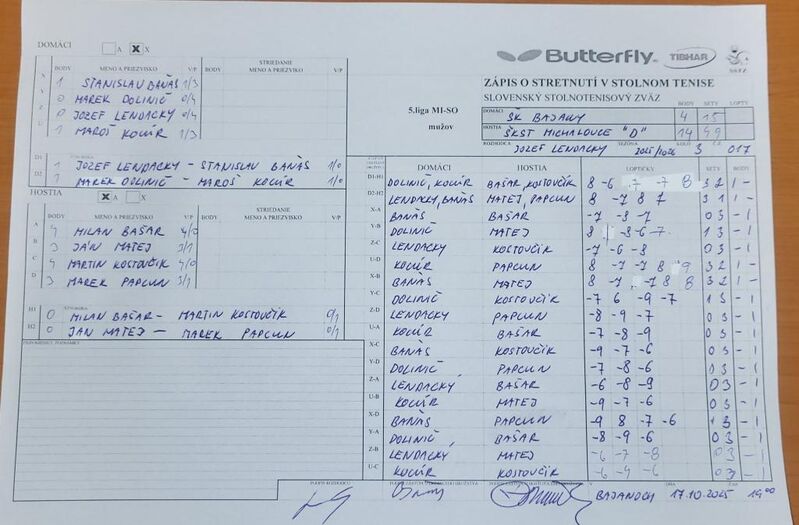 DOMÁCI A X X
BODY MENO A PRIEZVISKO V/P BODY STRIEDANIE MENO A PRIEZVISKO V/P
1 STANISLAV BANÁS 1/3
0 MAREK DOLINIČ 0/4
0 JOZEF LENDACKY 0/4
1 MAROŠ KOCÚR 1/3
D1 1 JOZEF LENDACKY - STANISLAV BANÁS 1/0
D2 1 MAREK DOLINIČ - MAROŠ KOCÚR 1/0
HOSTIA X A X
BODY MENO A PRIEZVISKO V/P BODY STRIEDANIE MENO A PRIEZVISKO V/P
A 4 MILAN BAŠAR 4/0
B 3 JÁN MATEJ 3/1
C 4 MARTIN KOSTOVČÍK 4/0
D 3 MAREK PAPCUN 3/1
H1 0 MILAN BAŠAR - MARTIN KOSTOVČÍK 0/1
H2 0 JAN MATEJ - MAREK PAPCUN 0/1
PODPIS ROZHODCU
Butterfly TIBHAR SSTZ
ZÁPIS O STRETNUTÍ V STOLNOM TENISE
SLOVENSKÝ STOLNOTENISOVÝ ZVÄZ
5.liga MI-SO
mužov
BODY SETY LOPTY
DOMÁCI ŠK BAJANY 4 15
HOSTIA ŠKST MICHALOVCE "D" 14 49
ROZHODCA JOZEF LENDACKY SEZÓNA 2025/2026 KOLO 3 017
DOMÁCI HOSTIA LOPTIČKY SETY BODY
D1-H1 DOLINIČ, KOCÚR BAŠAR KOSTOVČÍK 8 -6 7 -7 8 3 2 1 -
D2-H2 LENDACKY, BANÁS MATEJ, PAPCUN 8 -7 8 7 3 1 1 -
X-A BANÁS BAŠAR -7 -8 -7 0 3 - 1
Y-B DOLINIČ MATEJ 8 -8 -6 -7 1 3 - 1
Z-C LENDACKY KOSTOVČÍK -7 -6 -8 0 3 - 1
U-D KOCÚR PAPCUN 8 -7 -7 8 9 3 2 1 -
X-B BANÁS MATEJ 8 -7 -7 8 8 3 2 1 -
Y-C DOLINIČ KOSTOVČÍK -7 6 -9 -7 1 3 - 1
Z-D LENDACKY PAPCUN -8 -9 -7 0 3 - 1
U-A KOCÚR BAŠAR -7 -8 -9 0 3 - 1
X-C BANÁS KOSTOVČÍK -9 -7 -6 0 3 - 1
Y-D DOLINIČ PAPCUN -7 -8 -6 3 - 1
Z-A LENDACKY BAŠAR -6 -8 -9 0 3 - 1
U-B KOCÚR MATEJ -9 -7 -6 0 3 - 1
X-D BANÁS PAPCUN -9 8 -7 -6 1 3 - 1
Y-A DOLINIČ BAŠAR -8 -9 -6 0 3 - 1
Z-B LENDACKY MATEJ -6 -7 -8 0 3 - 1
U-C KOCÚR KOSTOVČÍK -6 -6 0 3 - 1
BAJANOCH 17.10.2025 19 00